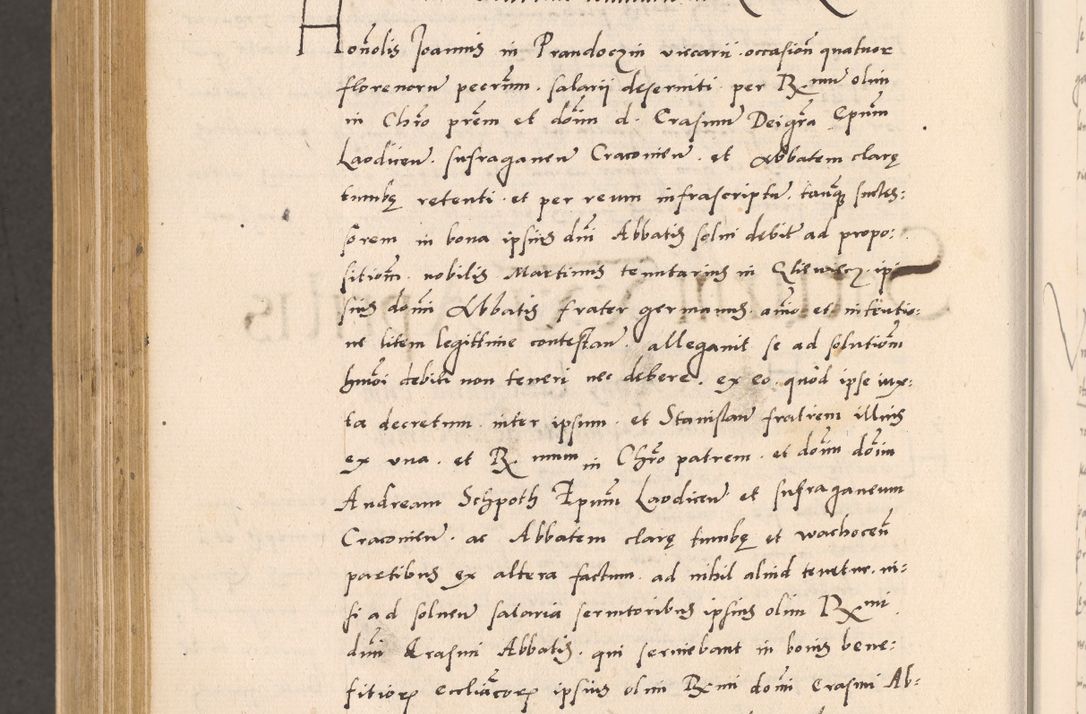 Honolis Joannis in Prandoczin viccarii occasion quatuor
florenoru pecun. salarii deserviti per Rmu olim
in Chro prem et doim d. Erasmu Dei gra Epum
Laodiceñ. sufraganeu Cracovieñ. et Abbatem clarę
tumbę retenti. et per reum infrascriptu. tanq succes:
sorem in bona ipsius dni Abbatis solvi debit ad propo:
sitiom. nobilis Martinus tenutarius in ip
sius domi Abbatis frater germanus. aio et intentio:
ne litem legittime contestan. allegavit se ad solutiom
hmoi debiti non teneri nec debere. ex eo quod ipse iux:
ta decretum inter ipsum et Stanislau fratrem illius
ex una. et R. mum in Chro patrem et doim doim
Andream Schpoth Epum Laodiceñ et sufraganeum
Cracovieñ. ac Abbatem clarę tumbę et wachoceñ
partibus ex altera factum. ad nihil aliud tenetur. ni:
si ad solueñ salaria servitoribus ipsius olim Rmi
dni Erasmi Abbatis. qui serviebant in bonis bene:
fitiorum eccliasticorum ipsius olim Rmi domi Erasmi Ab: